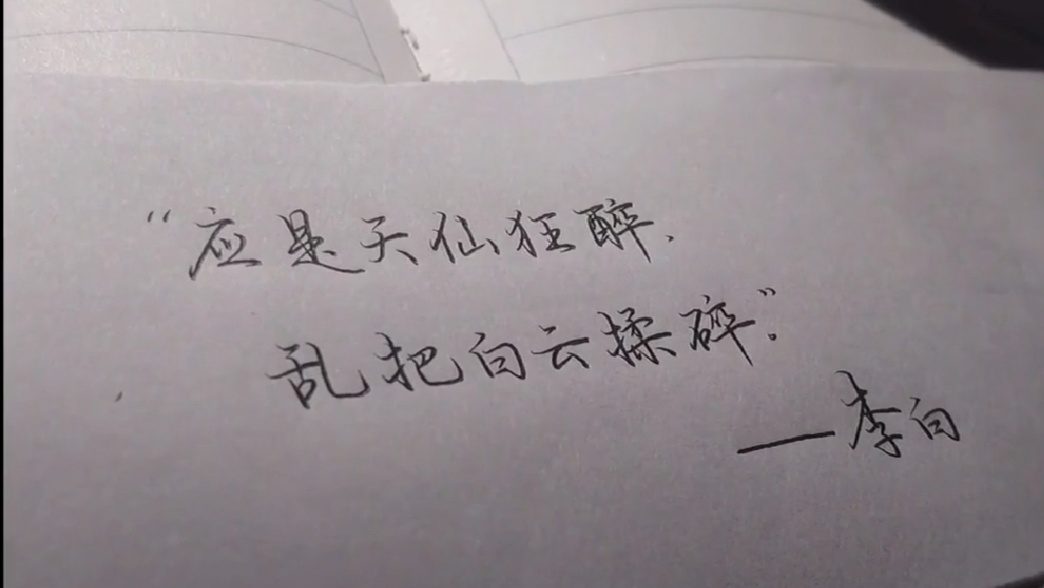 “应是天仙狂醉.
乱把白云揉碎”.
——李白